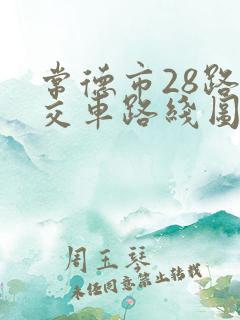 常德市28路
交车路线图
周玉琴
未经同意禁止转载